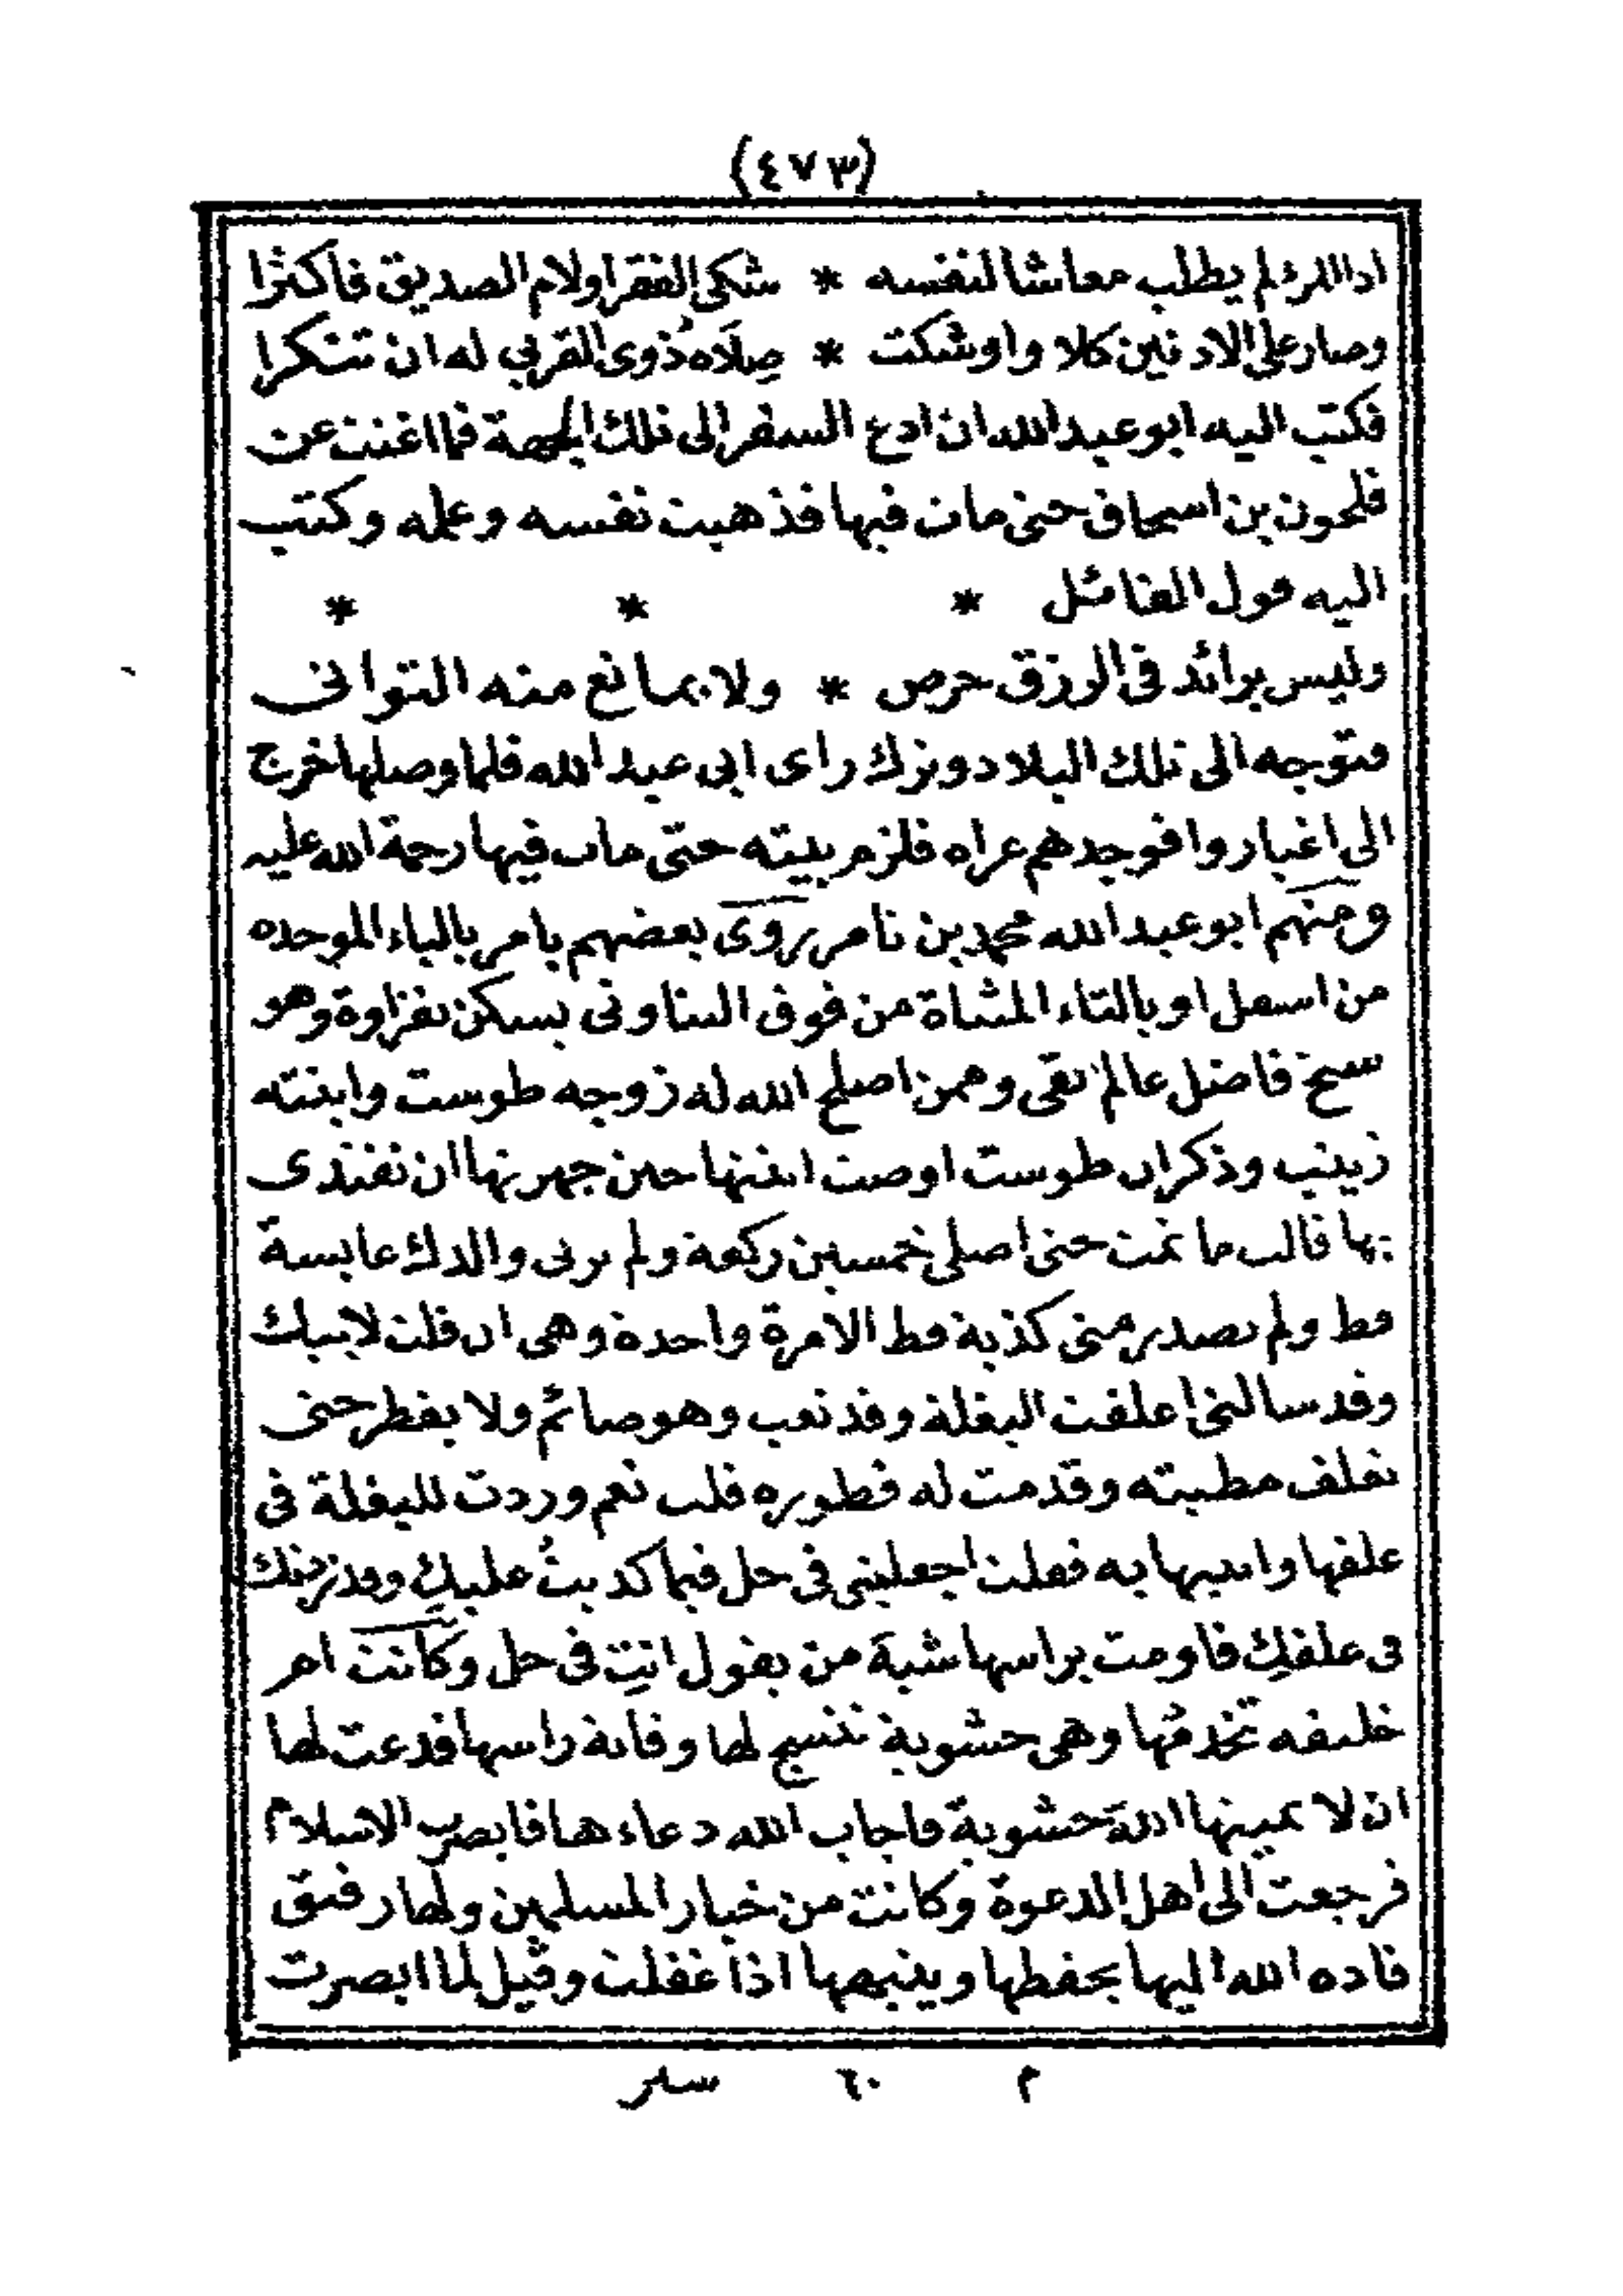 (٤٧٣)
اذا المرء لم يطلب معاشا لنفسه * شكى الفقر اولام الصديق فاكثرا
وصار على الادنين كلا واوشكت * صِلَاه ذُوى القربى له ان تتنكرا
فكتب اليه ابو عبد الله ان ادع السفر الى تلك الجهة فما اغنت عن
فلحون بن اسحاق حتى مات فيها فذهبت نفسه وعلمه وكتب
اليه قول القائل * * *
وليس برائد فى الرزق حرص * ولا بمانع منه التوانى
فتوجه الى تلك البلاد وترك راى ابى عبد الله فلما وصلها خرج
الى اغيار وا فوجدهم عراه فلزم بيته حتى مات فيها رحمة الله عليه
ومنهم ابو عبد الله محمد بن تامر يروى بعضهم بامر بالباء الموحده
من اسفل او بالتاء المثناة من فوق التناوتى يسكن نفزاوة وهو
شيخ فاضل عالم تقى وممن اصلح الله له زوجه طوست وابنته
زينب وذكر ان طوست اوصت ابنتها حين جهزتها ان تقتدى
بها قالت ما نمت حتى اصلى خمسين ركعة ولم يرنى والدك عابسة
قط ولم تصدر منى كذبة قط الا مرة واحدة وهى ان قلت لابيك
وقد سالنى اعلفت البغلة وقد تعب وهو صائم ولا يفطر حتى
تعلف مطيته وقدمت له فطوره قلت نعم وزدت للبغلة فى
علفها واتيتها به فقلت اجعلينى فى حل فيما كذبتُ عليكِ وقد زدتك
فى علفكِ فاومت براسها شبهَ من يقول انتِ فى حل وكانت ام
خليفه تخدمُها وهى حشوية تنسج لها وقاية راسها فدعت لها
ان لا يميتها اللهَ حشوية فاجاب الله دعاءها فابصرت الاسلام
فرجعت الى اهل الدعوة وكانت من خيار المسلمين ولها رفيق
قاده الله اليها يحفظها وينبهها اذا غفلت وقيل لما ابصرت
م ٦٠ سير